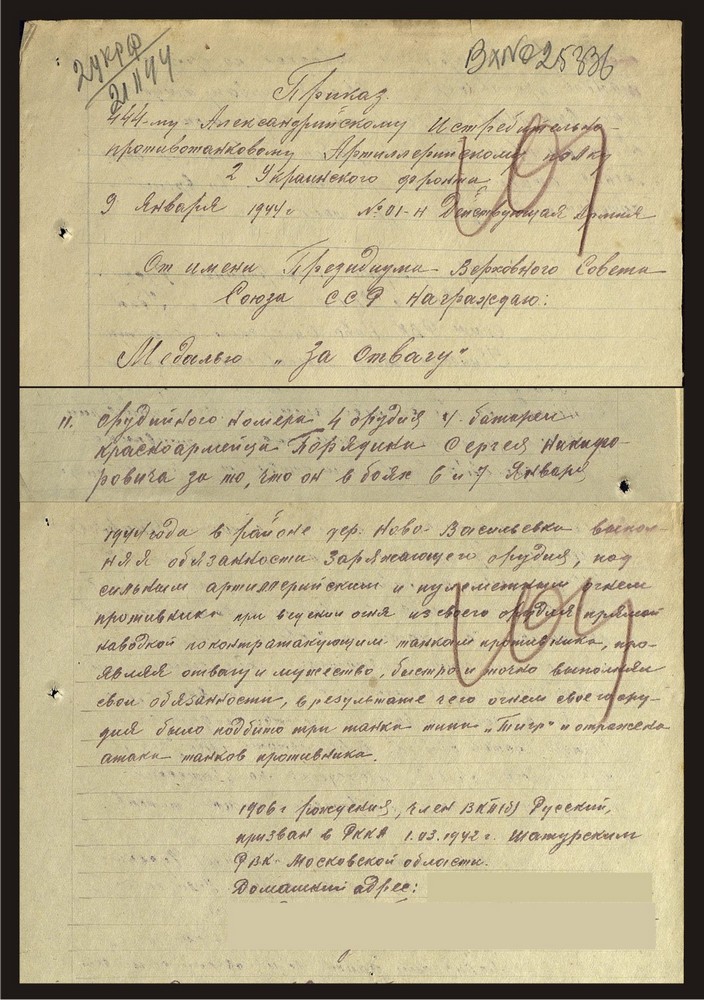 2 УКР Ф
21 II 44
Вх№ 25336
Приказ
444-му Александрийскому Истребительно-
противотанковому Артиллерийскому полку
2 Украинского фронта
9 Января 1944 г №01-Н Действующая Армия
От имени Президиума Верховного Совета
Союза ССР Награждаю:
Медалью „За Отвагу“
11. Орудийного номера 4 орудия 4 батареи
красноармейца Порядина Сергея Никифо-
ровича за то, что он в боях 6 и 7 Января
1944 года в районе дер. Ново-Васильевка выпол-
няя обязанности заряжающего орудия, под
сильным артиллерийским и пулеметным огнем
противника при ведении огня из своего орудия прямой
наводкой по контратакующим танкам противника, про-
являя отвагу и мужество, быстро и точно выполнял
свои обязанности, в результате чего огнем своего ору-
дия было подбито три танка типа „Тигр“ и отражена
атака танков противника.
1906 г рождения, член ВКП(б) Русский,
призван в РККА 1.03.1942 г. Шатурским
РВК Московской области.
Домашний адрес: